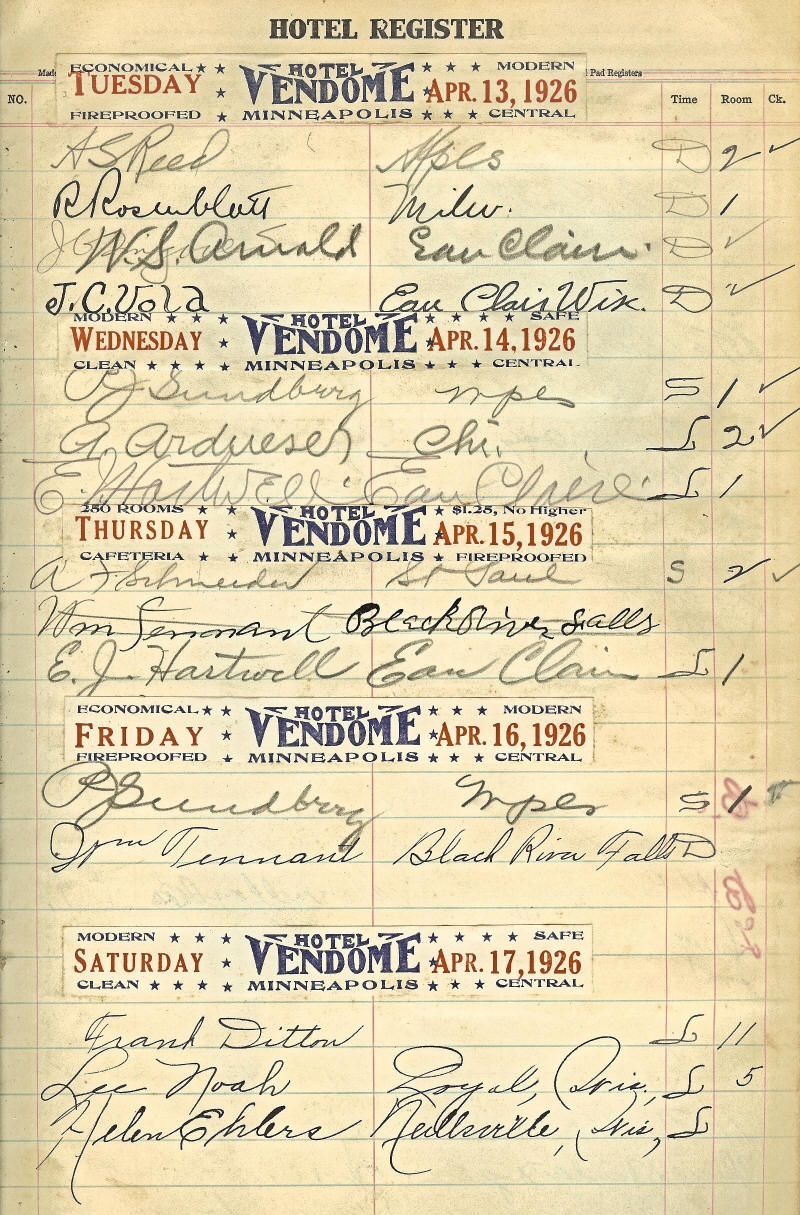 HOTEL REGISTER
Pad Registers
NO. Time Room Ck.
ECONOMICAL ★ ★ HOTEL ★ ★ ★ MODERN
TUESDAY ★ VENDOME ★ APR. 13, 1926
FIREPROOFED ★ MINNEAPOLIS ★ ★ CENTRAL
A S Reed Mpls D 2 ✓
R Rosenblatt Milw. D 1
W.S. Arnold Eau Clair. D ✓
J.C. Vold Eau Clair Wis. D ✓
MODERN ★ ★ ★ HOTEL ★ ★ ★ ★ SAFE
WEDNESDAY ★ VENDOME ★ APR. 14, 1926
CLEAN ★ ★ ★ ★ MINNEAPOLIS ★ ★ ★ CENTRAL
P J Sundberg mpls S 1 ✓
A. Ardueser Chi. L 2 ✓
E J Hartwell Eau Claire L 1
250 ROOMS ★ ★ HOTEL ★ $1.25, No Higher
THURSDAY ★ VENDOME ★ APR. 15, 1926
CAFETERIA ★ ★ MINNEAPOLIS ★ FIREPROOFED
A F Schneider St Paul S 2 ✓
Wm Tennant Black River Falls
E. J. Hartwell Eau Clair L 1
ECONOMICAL ★ ★ HOTEL ★ ★ ★ MODERN
FRIDAY ★ VENDOME ★ APR. 16, 1926
FIREPROOFED ★ MINNEAPOLIS ★ ★ CENTRAL
P J Sundberg mpls S 1
Wm Tennant Black River Falls D
MODERN ★ ★ ★ HOTEL ★ ★ ★ ★ SAFE
SATURDAY ★ VENDOME ★ APR. 17, 1926
CLEAN ★ ★ ★ ★ MINNEAPOLIS ★ ★ ★ CENTRAL
Frank Ditton L 11
Lee Noah Loyal, Wis, L 5
Helen Ehlers Neillsville, Wis, L